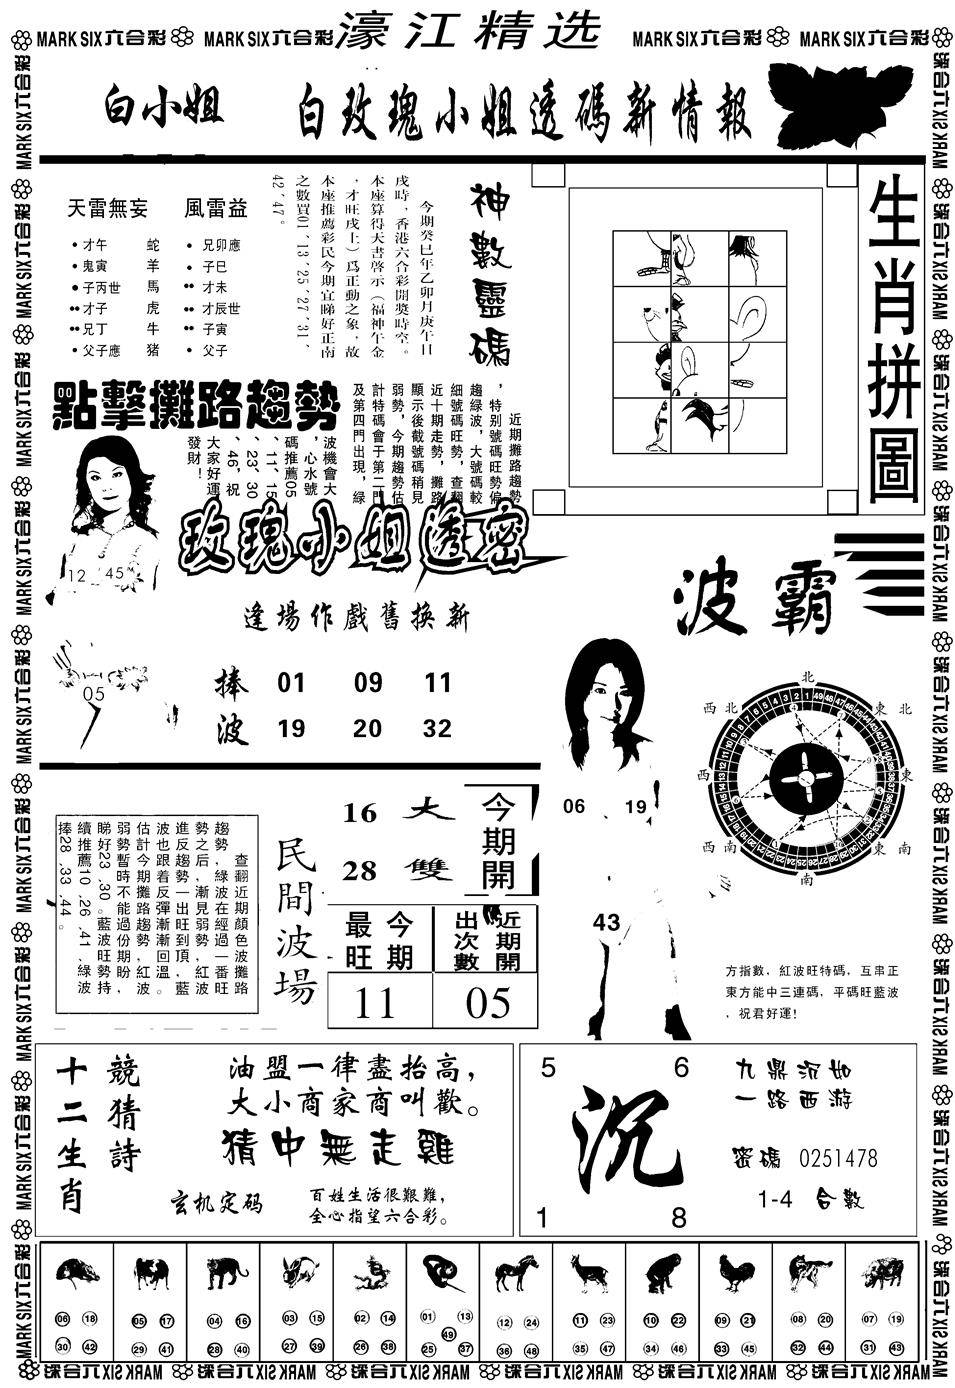 MARK SIX六合彩 MARK SIX六合彩 濠江精选 MARK SIX六合彩 MARK SIX六合彩
白小姐 白玫瑰小姐透碼新情報
天雷無妄 風雷益
才午 蛇 兄卯應
鬼寅 羊 子巳
子丙世 馬 才未
才子 虎 才辰世
兄丁 牛 子寅
父子應 猪 父子
神數靈碼
今期癸巳年乙卯月庚午日
戌時，香港六合彩開獎時空。
本座算得天書啓示（福神午金
，才旺戌土）爲正動之象，故
本座推薦彩民今期宜睇好正南
之數買01﹑13﹑25﹑27﹑31﹑
42﹑47。
生肖拼圖
點擊攤路趨勢
近期攤路趨勢
，特别號碼旺勢偏
趨綠波，大號碼較
細號碼旺勢，查翻
近十期走勢，攤路
顯示後截號碼稍見
弱勢，今期趨勢估
計特碼會于第二門
及第四門出現，綠
波機會大
，心水號
碼推薦05
﹑11﹑15
﹑23﹑30
﹑46，祝
大家好運
發財！
12 45
05
玫瑰小姐透密
逢場作戲舊換新
捧 01 09 11
波 19 20 32
波霸
北
東北
東
東南
南
西南
西
西北
06 19
43
方指數，紅波旺特碼，互串正
東方能中三連碼，平碼旺藍波
，祝君好運！
查翻近期顏色波攤路
趨勢，綠波在經過一番旺
勢之后，漸見弱勢，紅波
進反趨勢一出旺到頂，藍
波也跟着反彈漸漸回溫。
估計今期攤路趨勢紅波
弱勢暫時不能過份期盼，
睇好23﹑30。藍波旺勢持
續推薦10﹑26﹑41﹑綠波
捧28﹑33﹑44。
民間波場
16 大 今期開
28 雙
今期最旺 近期開出次數
11 05
十二生肖
競猜詩
油盟一律盡抬高，
大小商家商叫歡。
猜中無走雞
玄机定码
百姓生活很艱難，
全心指望六合彩。
5 6
沉
1 8
九鼎沉如
一路西游
密碼 0251478
1-4 合數
06 18 05 17 04 16 03 15 02 14 01 13 12 24 11 23 10 22 09 21 08 20 07 19
49
30 42 29 41 28 40 27 39 26 38 25 37 36 48 35 47 34 46 33 45 32 44 31 43